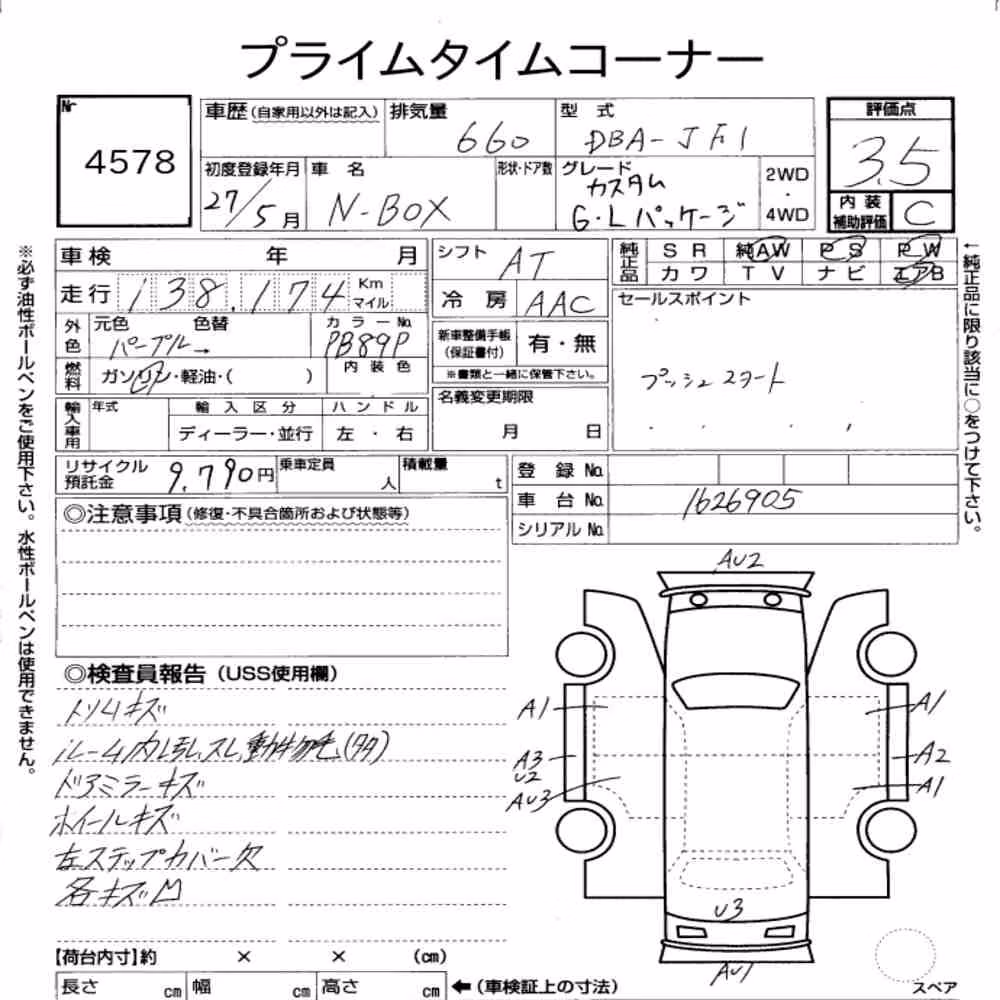 プライムタイムコーナー
Nr
4578
車歴(自家用以外は記入)
排気量
660
型 式
DBA-JF1
評価点
3.5
内装
補助評価
C
初度登録年月
27/5月
車 名
N-BOX
形状・ドア数
グレード
カスタム
G・Lパッケージ
2WD
・
4WD
車検 年 月
シフト
AT
純正品
SR 純AW PS PW
カワ TV ナビ エアB
走行 138,174 Km
マイル
冷 房
AAC
セールスポイント
プッシュスタート
外色
元色 色替
パープル→
カラーNo.
PB89P
新車整備手帳
(保証書付)
有・無
※書類と一緒に保管下さい。
燃料
ガソリン・軽油・( )
内装色
名義変更期限
月 日
輸入車用
年式
輸入区分
ハンドル
ディーラー・並行
左・右
リサイクル
預託金
9,790円
乗車定員
人
積載量
t
登 録 No.
車 台 No.
1626905
シリアル No.
◎注意事項(修復・不具合箇所および状態等)
◎検査員報告(USS使用欄)
トリムキズ
ドアミラーキズ
ホイールキズ
左ステップカバー欠
各キズ凹
AU2
A1
A3
U2
AU3
A1
A2
A1
U3
AU1
スペア
【荷台内寸】約 × × (cm)
長さ cm 幅 cm 高さ cm
←(車検証上の寸法)
※必ず油性ボールペンをご使用下さい。水性ボールペンは使用できません。
←純正品に限り該当に○をつけて下さい。